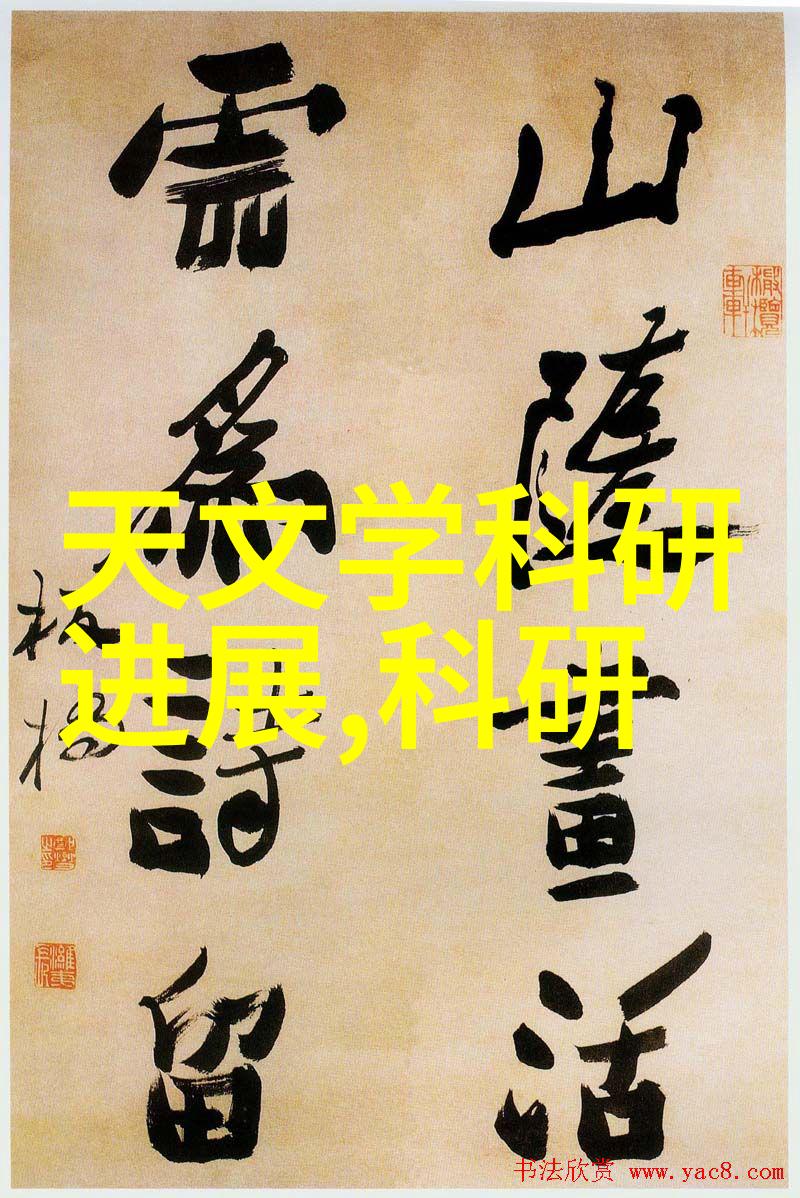 山隨畫活
雲爲詩留
板橋
天文学科研
进展,科研
书法欣赏 www.yac8.com